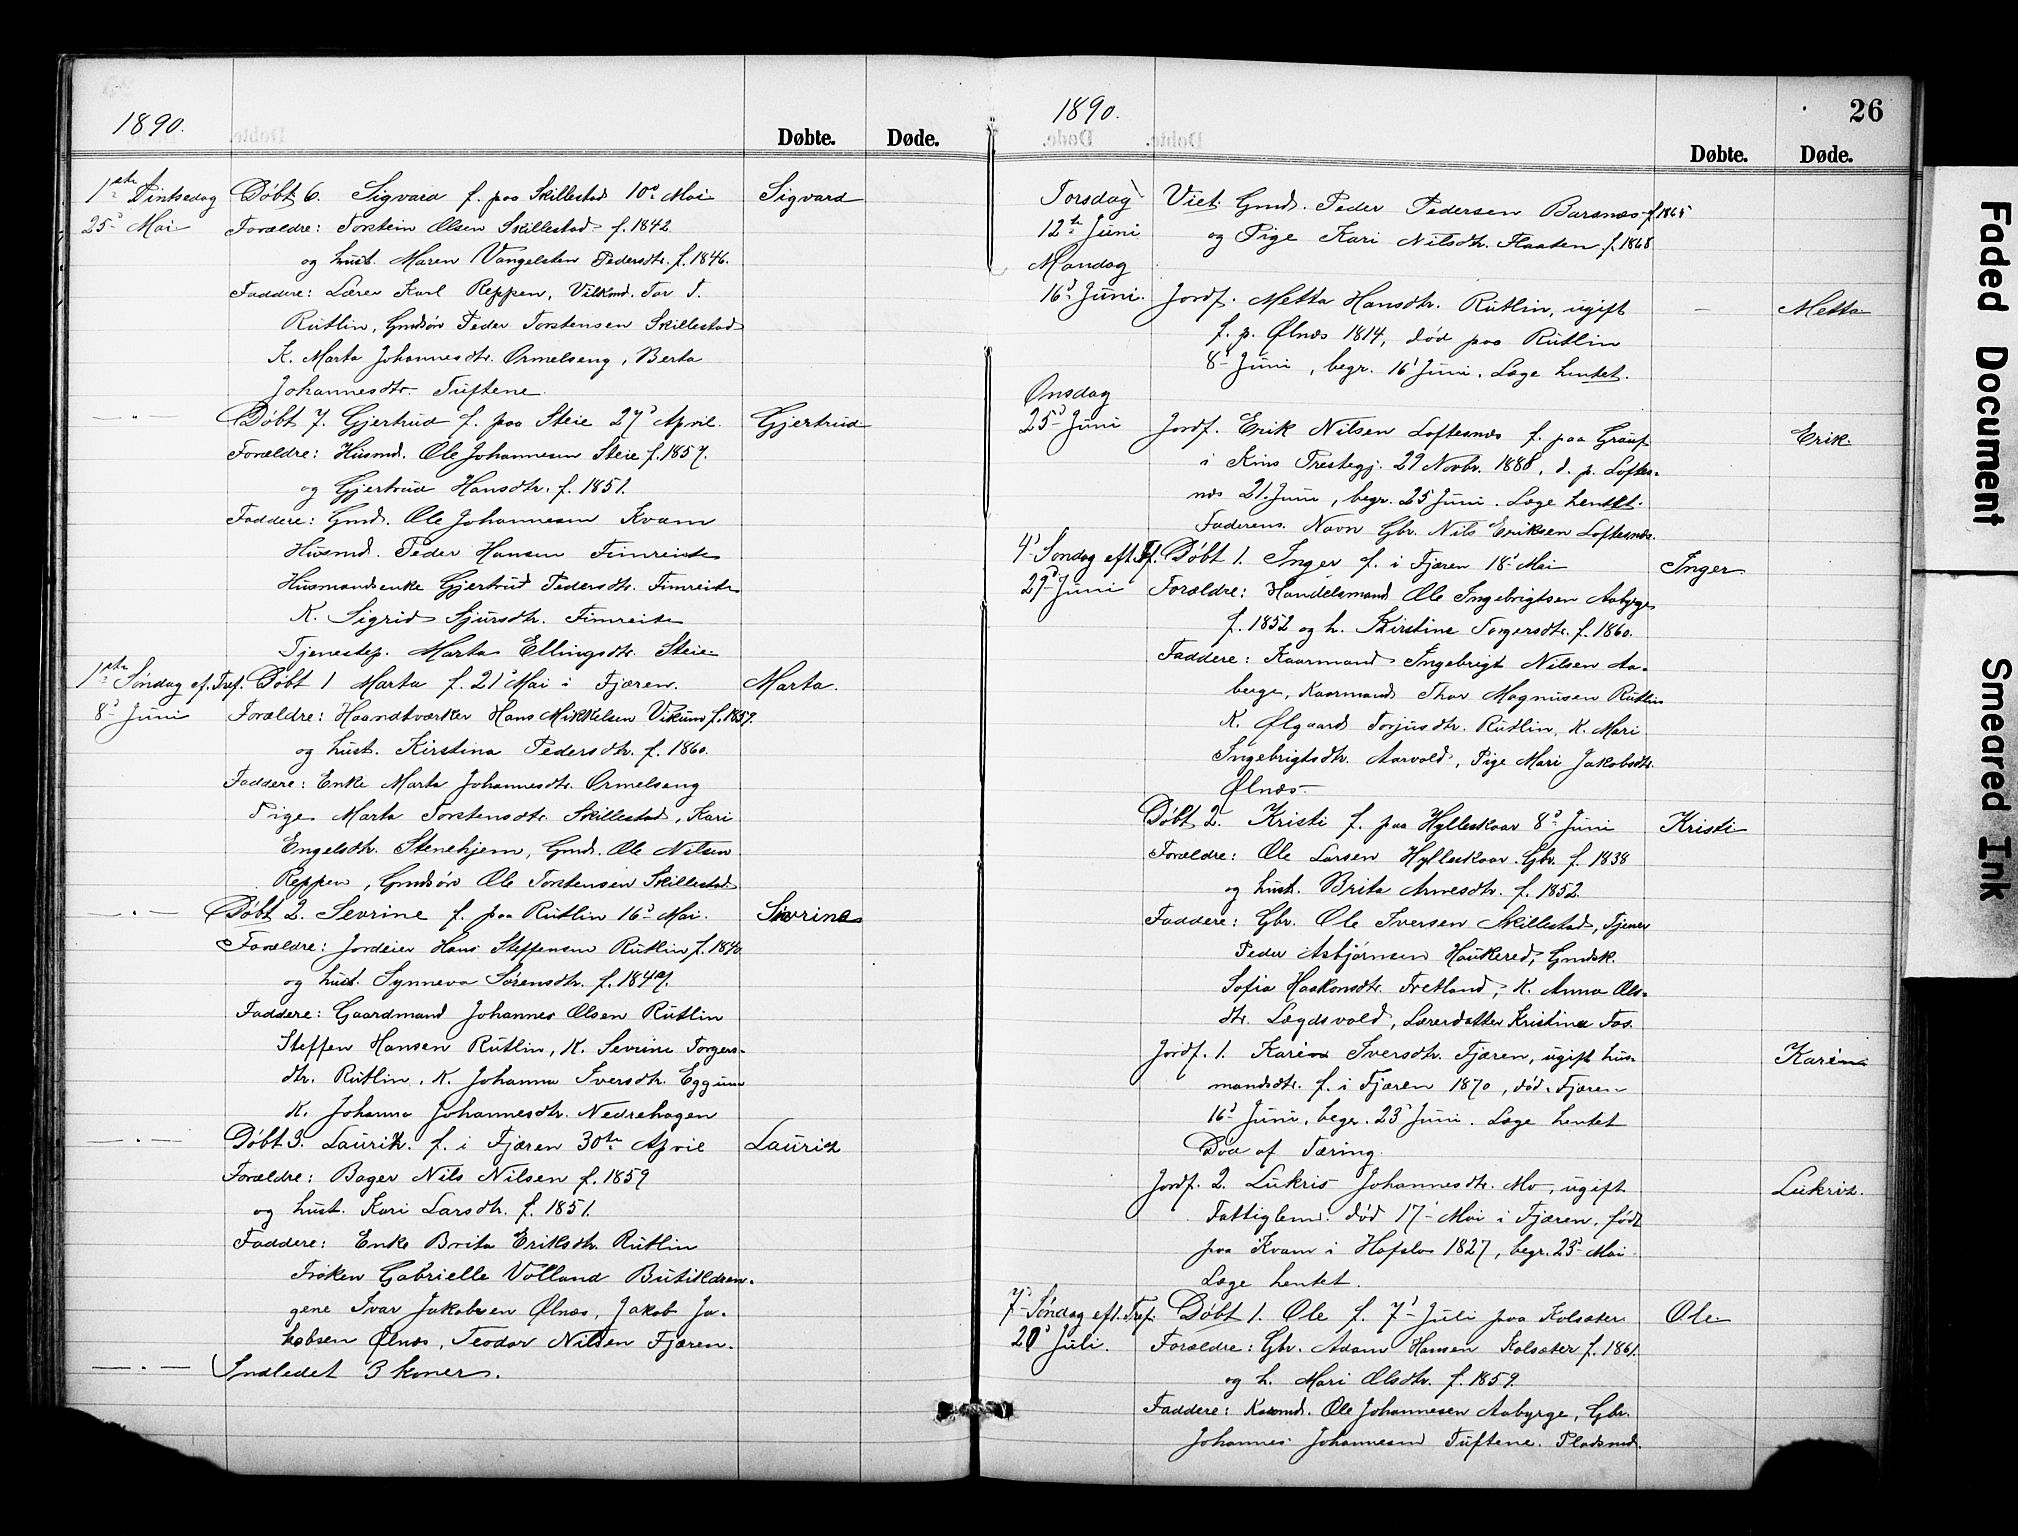 1890.
Døbte. Døde.
1ste Pintsedag Døbt 6. Sigvard f. paa Skillestad 10d Mai Sigvard
25d Mai Forældre: Torstein Olsen Skillestad f. 1842
og hust. Maren Vangelsten Pedersdtr. f. 1846.
Faddere: Lærer Karl Reppen, Vilkmd. Tor T.
Rutlin, Gmdsøn Peder Torstensen Skillestad
K. Marta Johannesdtr. Ormelseng, Berta
Johannesdtr. Tuftene
— " — Døbt 7. Gjertrud f. paa Steie 27d April. Gjertrud
Forældre: Husmd. Ole Johannesen Steie f. 1857.
og Gjertrud Hansdtr. f. 1851.
Faddere: Gmd. Ole Johannesen Kvam
Husmd. Peder Hansen Fimreite
Husmandsenke Gjertrud Pedersdtr. Fimreite
K. Sigrid Sjursdtr. Fimreite
Tjenestep. Marta Ellingsdtr. Steie
1ste Søndag ef. Tref. Døbt 1 Marta f. 21d Mai i Fjæren. Marta.
8d Juni Forældre: Haandtværker Hans Mikkelsen Vikum f. 1859.
og hust. Kirstina Pedersdtr. f. 1860.
Faddere: Enke Marta Johannesdtr. Ormelseng
Pige Marta Torstensdtr. Skillestad, Kari
Engelsdtr. Stenehjem, Gmd. Ole Nilsen
Reppen, Gmdsøn Ole Torstensen Skillestad
— " — Døbt 2. Sevrine f. paa Rutlin 16d Mai. Sevrine
Forældre: Jordeier Hans Steffensen Rutlin f. 1840
og hust. Synneva Sørensdtr. f. 1849.
Faddere: Gaardmand Johannes Olsen Rutlin
Steffen Hansen Rutlin, K. Sevrine Torgers-
dtr. Rutlin, K. Johanna Iversdtr. Eggum
K. Johanna Johannesdtr. Nedrehagen
— " — Døbt 3. Lauritz. f. i Fjæren 30te April Lauritz
Forældre: Bager Nils Nilsen f. 1859
og hust. Kari Larsdtr. f. 1851.
Faddere: Enke Brita Eriksdtr. Rutlin
Frøken Gabrielle Volland Butikdren-
gene Ivar Jakobsen Ølnæs, Jakob Ja-
kobsen Ølnæs, Teodor Nilsen Fjæren.
— " — Indledet 3 koner.
1890. 26
Døbte. Døde.
Torsdag Viet. Gmd. Peder Pedersen Barsnæs f. 1865
12te Juni og Pige Kari Nilsdtr. Flaaten f. 1868
Mandag
16d Juni. Jordf. Metta Hansdtr. Rutlin, ugift — Metta
f. p. Ølnæs 1814, død paa Rutlin
8d Juni, begr. 16d Juni. Læge hentet.
Onsdag
25d Juni Jordf. Erik Nilsen Loftesnæs f. paa Erik
i Kins Prestegj. 29 Novbr. 1888, d. p. Loftes-
næs 21. Juni, begr. 25 Juni. Læge hentet.
Faderens Navn Gbr. Nils Eriksen Loftesnæs.
4d Søndag eft. Tf. Døbt 1. Inger f. i Fjæren 18d Mai Inger
29d Juni Forældre: Handelsmand Ole Ingebrigtsen Aabyrge
f. 1852 og h. Kirstine Torgersdtr. f. 1860.
Faddere: Kaarmand Ingebrigt Nilsen Aa-
berge, Kaarmand Thor Magnusen Rutlin
K. Ølgaard Torjusdtr. Rutlin, K. Mari
Ingebrigtsdtr. Aarvold, Pige Mari Jakobsdtr.
Ølnæs
Døbt 2. Kristi f. paa Hylleskaar 8d Juni Kristi
Forældre: Ole Larsen Hylleskaar Gbr. f. 1838
og hust. Brita Arnesdtr. f. 1852.
Faddere: Gbr. Ole Iversen Skillestad, Tjener
Peder Asbjørnsen Haukered, Gmdsk.
Sofia Haakonsdtr. Fretland, K. Anna Ols-
dtr. Lægdsvold, Lærerdatter Kristine Fos.
Jordf. 1. Karine Iversdtr. Fjæren, ugift hus- Karine
mandsdtr. f. i Fjæren 1870, død i Fjæren
16d Juni, begr. 23d Juni. Læge hentet
Død af Tæring.
Jordf. 2. Lukris Johannesdtr. Mo, ugift Lukris.
Fattiglem. død 17d Mai i Fjæren, født
paa Kvam i Hafslo 1827, begr. 23d Mai
Læge hentet.
7d Søndag eft. Tref. Døbt 1. Ole f. 7d Juli paa Kolsæter Ole
20d Juli. Forældre: Gbr. Adam Hansen Kolsæter f. 1861.
og h. Mari Olsdtr. f. 1859.
Faddere: Kaarmd. Ole Johannesen Aabyrge, Gbr.
Johannes Johannesen Tuftene. Pladsmd.
Faded Document
Smeared Ink